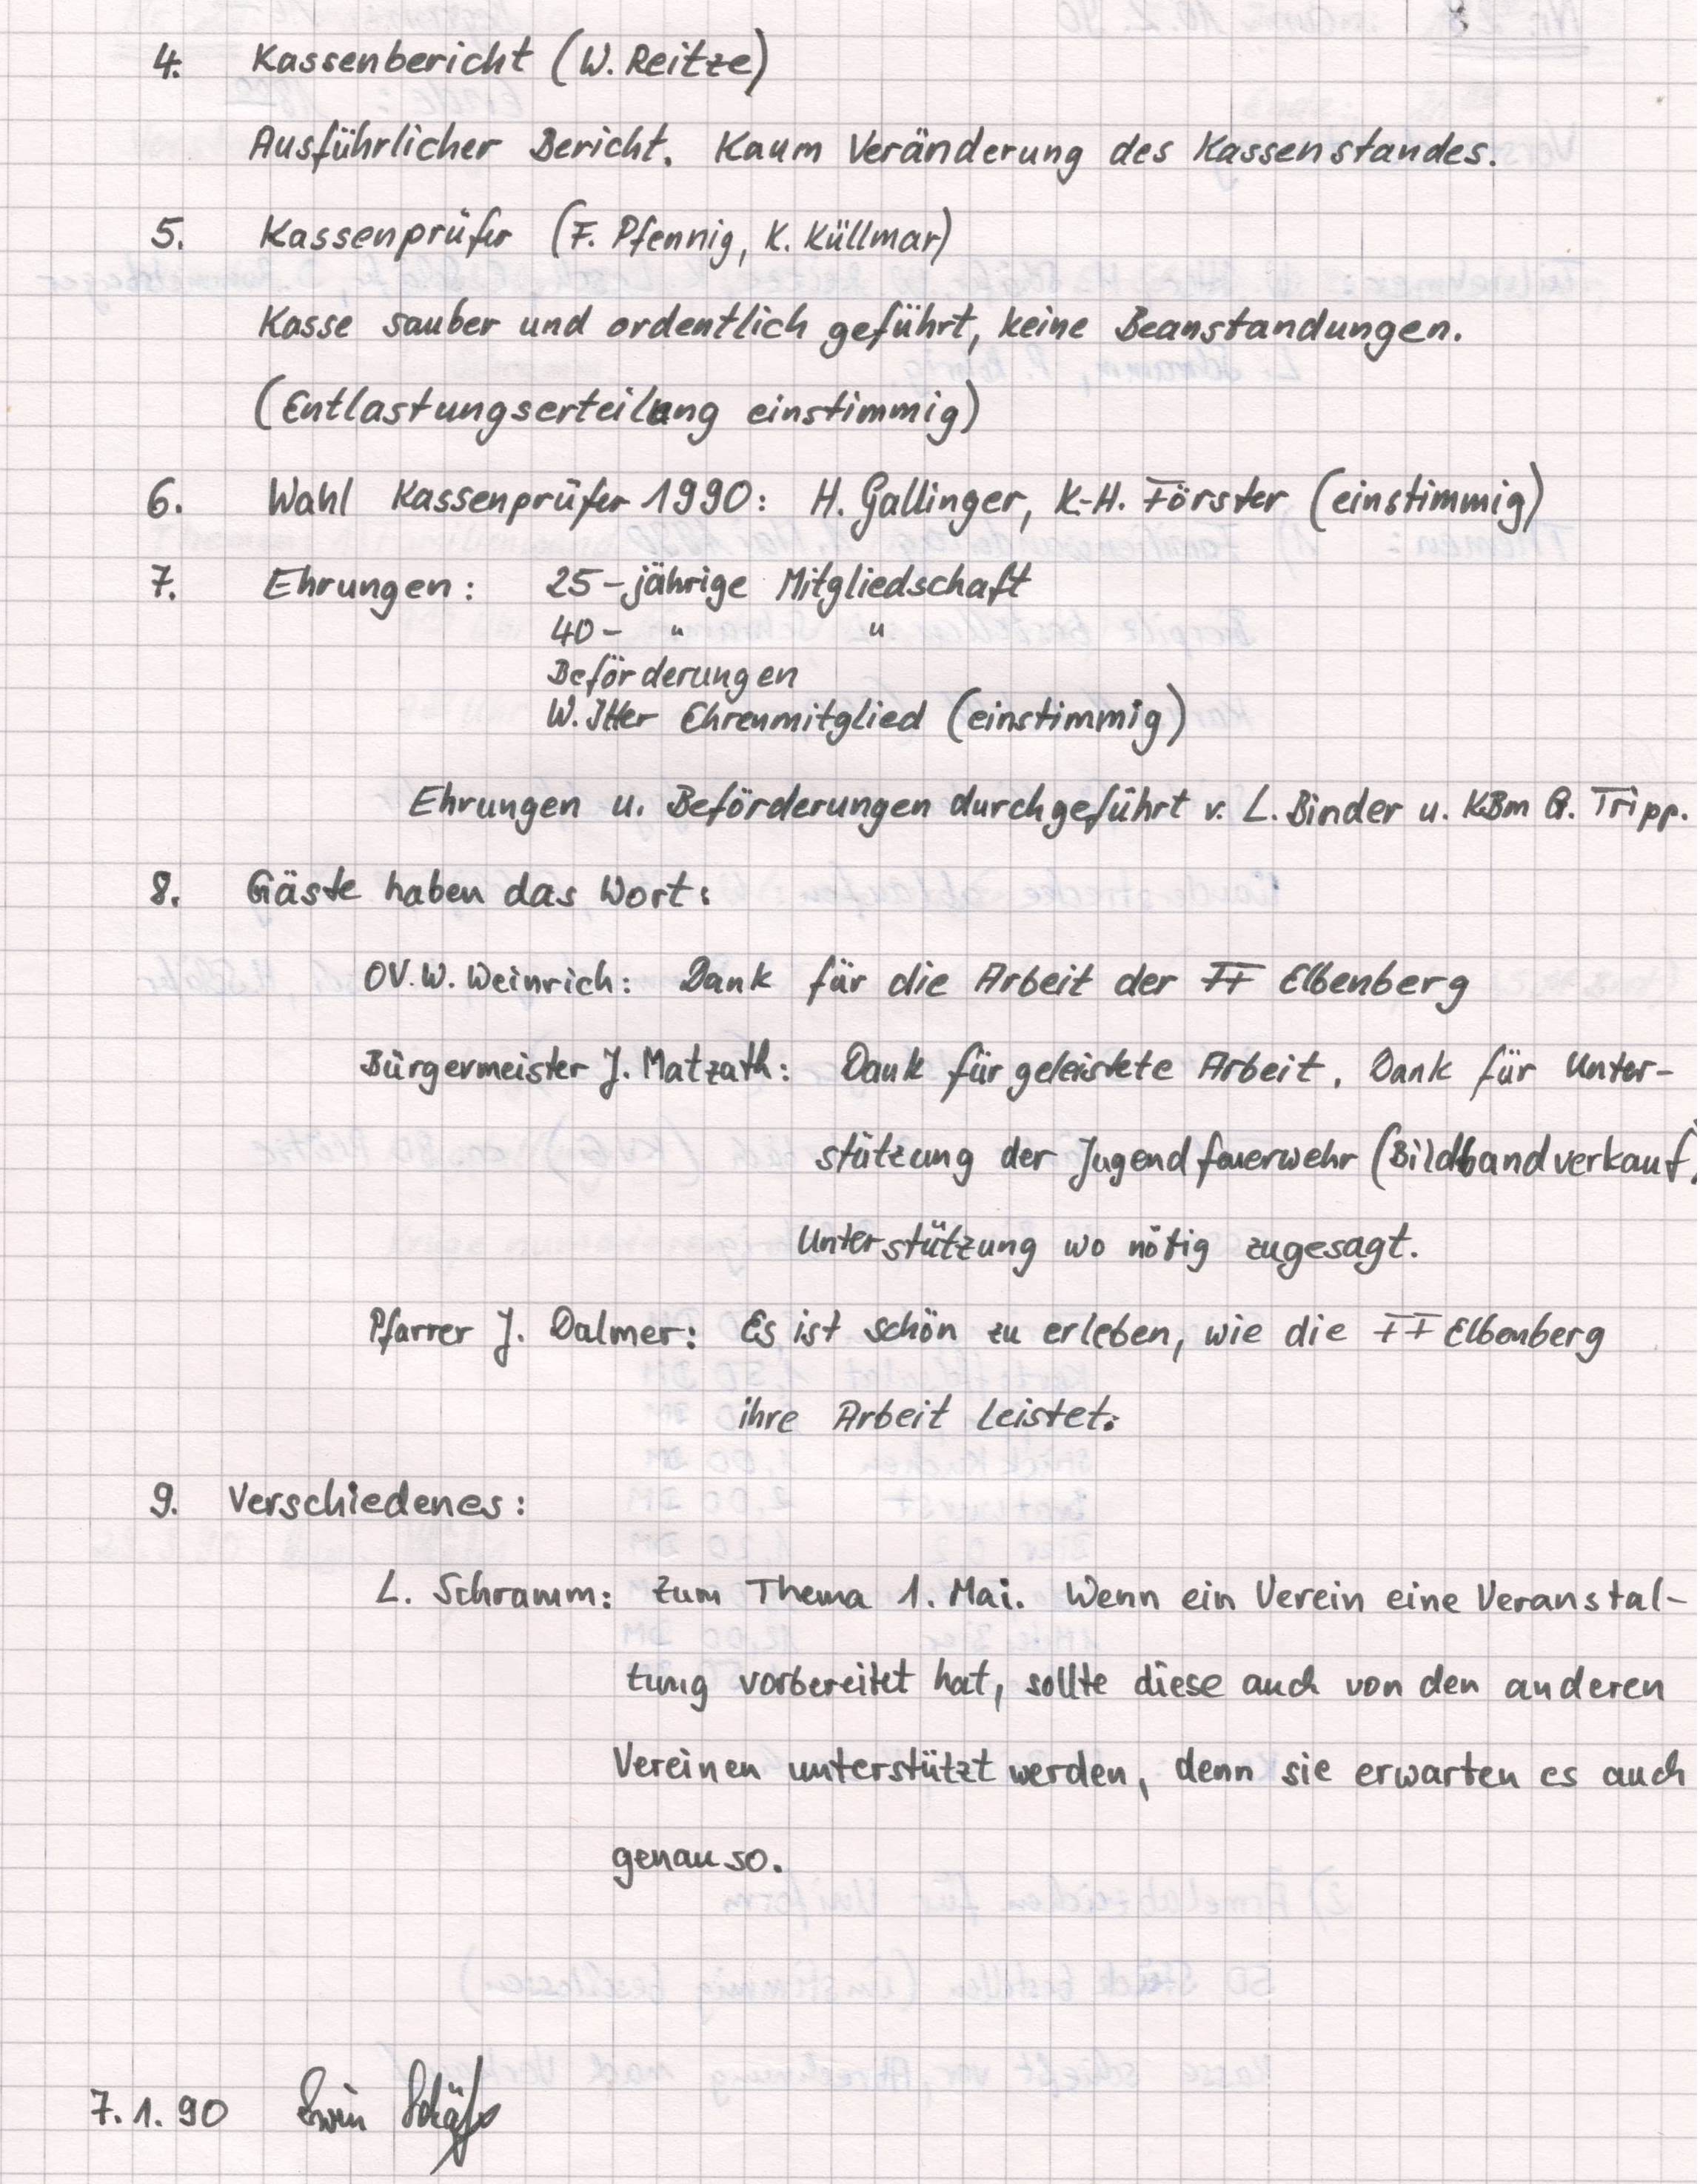 4. Kassenbericht (W. Reitze)
Ausführlicher Bericht. Kaum Veränderung des Kassenstandes.
5. Kassenprüfer (F. Pfennig, K. Küllmar)
Kasse sauber und ordentlich geführt, keine Beanstandungen.
(Entlastungserteilung einstimmig)
6. Wahl Kassenprüfer 1990: H. Gallinger, K.-H. Förster (einstimmig)
7. Ehrungen: 25-jährige Mitgliedschaft
40- " "
Beförderungen
W. Itter Ehrenmitglied (einstimmig)
Ehrungen u. Beförderungen durchgeführt v. L. Binder u. KBm G. Tripp.
8. Gäste haben das Wort:
OV. W. Weinrich: Dank für die Arbeit der FF Elbenberg
Bürgermeister J. Matzath: Dank für geleistete Arbeit. Dank für Unter-
stützung der Jugendfeuerwehr (Bildbandverkauf)
Unterstützung wo nötig zugesagt.
Pfarrer J. Dalmer: Es ist schön zu erleben, wie die FF Elbenberg
ihre Arbeit leistet.
9. Verschiedenes:
L. Schramm: Zum Thema 1. Mai. Wenn ein Verein eine Veranstal-
tung vorbereitet hat, sollte diese auch von den anderen
Vereinen unterstützt werden, denn sie erwarten es auch
genauso.
7.1.90